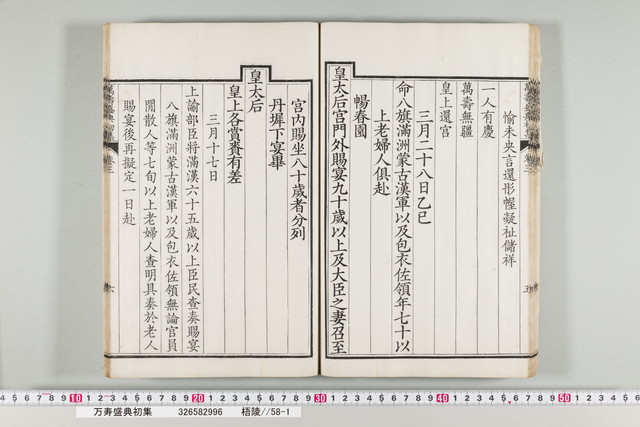 愉未央言還彤幄凝祉儲祥
一人有慶
萬壽無疆
皇上還宮
三月二十八日乙巳
命八旗滿洲蒙古漢軍以及包衣佐領年七十以
上老婦人俱赴
暢春園
皇太后宮門外賜宴九十歲以上及大臣之妻召至
宮內賜坐八十歲者分列
丹墀下宴畢
皇太后
皇上各賞賚有差
三月十七日
上諭部臣將滿漢六十五歲以上臣民查奏賜宴
八旗滿洲蒙古漢軍以及包衣佐領無論官員
閒散人等七旬以上老婦人查明具奏於老人
賜宴後再擬定一日赴
六
五
10 20 30 40 50
万寿盛典初集 326582996 梧陵//58-1